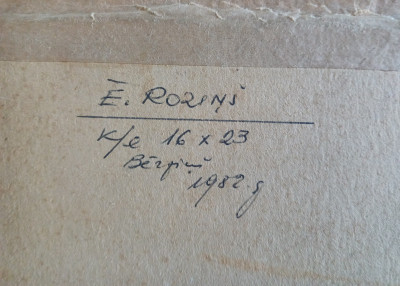 Ē. ROZIŅŠ
K/e 16 x 23
Bērziņi
1982.g